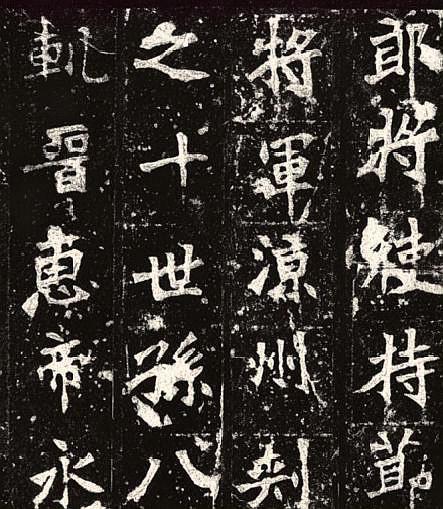 郎將使持節
將軍涼州刺
之十世孫八
軌晉惠帝永